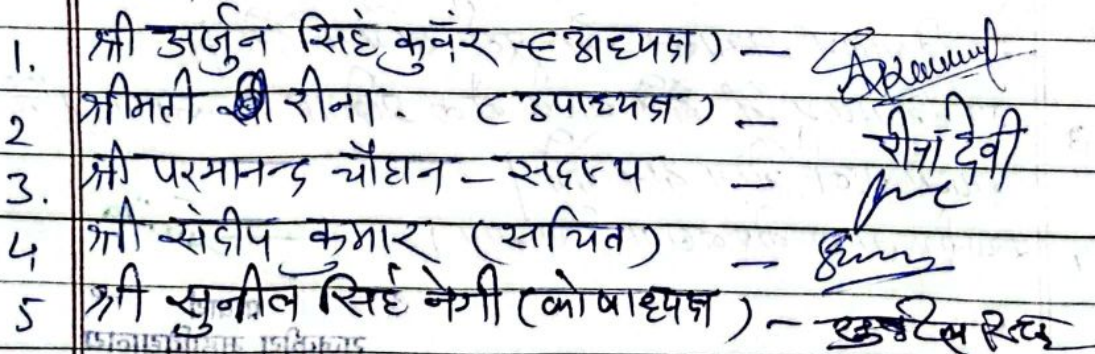 1. श्री अर्जुन सिहं कुवंर (अध्यक्ष) —
2 श्रीमती रीना. (उपाध्यक्ष) — रीना देवी
3. श्री परमानन्द चौहान - सदस्य —
4 श्री संदीप कुमार (सचिव) —
5 श्री सुनील सिहं नेगी (कोषाध्यक्ष) -